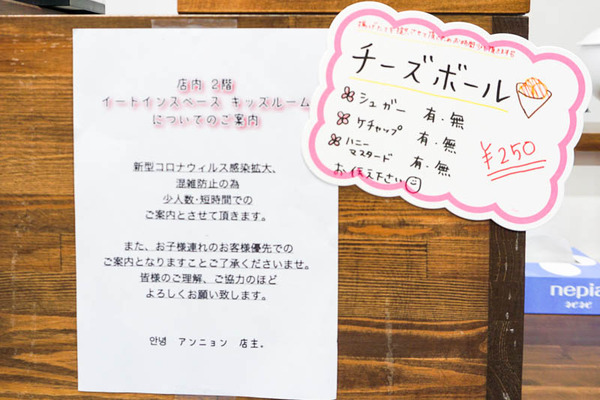 店内 2階
イートインスペース キッズルーム
についてのご案内
新型コロナウィルス感染拡大、
混雑防止の為
少人数・短時間での
ご案内とさせて頂きます。
また、お子様連れのお客様優先での
ご案内となりますことご了承くださいませ。
皆様のご理解、ご協力のほど
よろしくお願い致します。
안녕 アンニョン 店主.
チーズボール
シュガー 有・無
ケチャップ 有・無
ハニー
マスタード 有・無
お伝え下さい
¥250
nepia